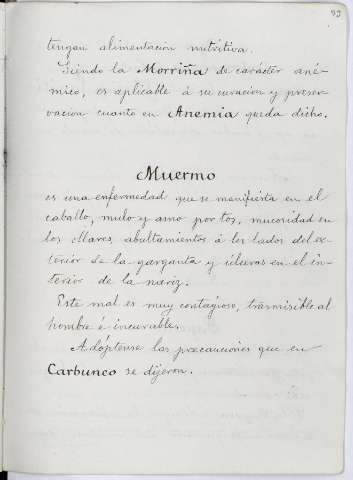 tengan alimentacion nutritiva.
Siendo la Morriña de carácter ané-
mico, es aplicable á su curacion y preser-
vacion cuanto en Anemia queda dicho.
Muermo
es una enfermedad que se manifiesta en el
caballo, mulo y asno por tos, mucosidad en
los ollares, abultamientos á los lados del ex-
terior de la garganta y úlceras en el in-
terior de la nariz.
Este mal es muy contagioso, trasmisible al
hombre é incurable.
Adóptense las precauciones que en
Carbunco se dijeron.